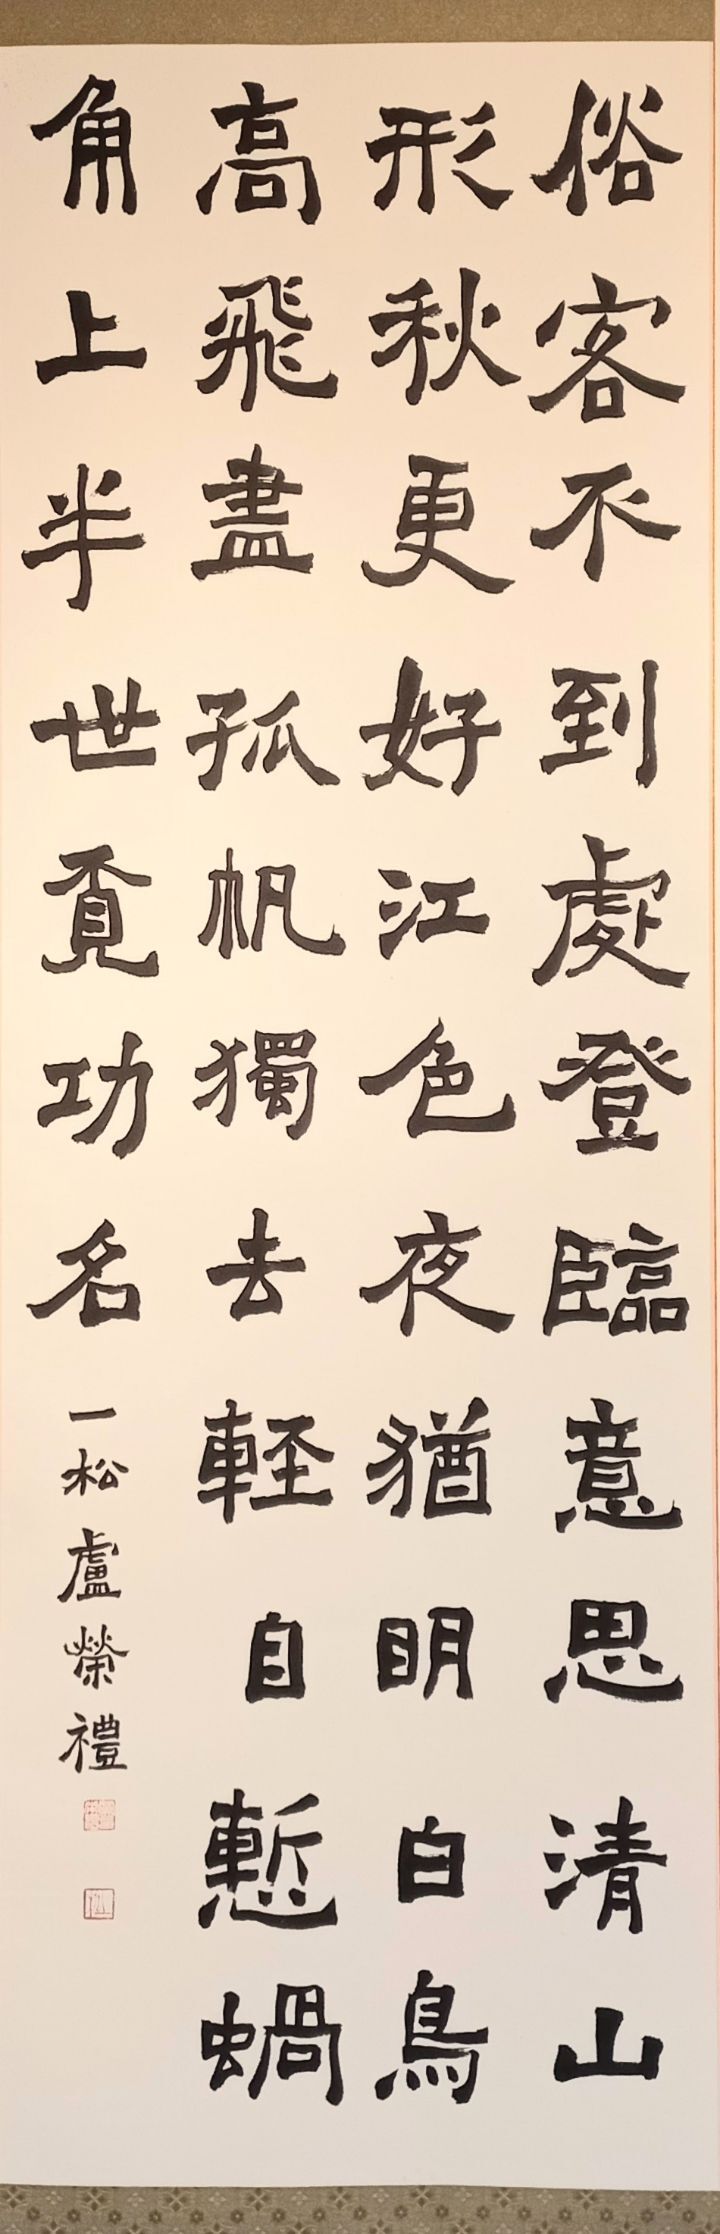 俗客不到處登臨意思清山
形秋更好江色夜猶明白鳥
高飛盡孤帆獨去輕自慙蝸
角上半世覓功名
一松盧榮禮